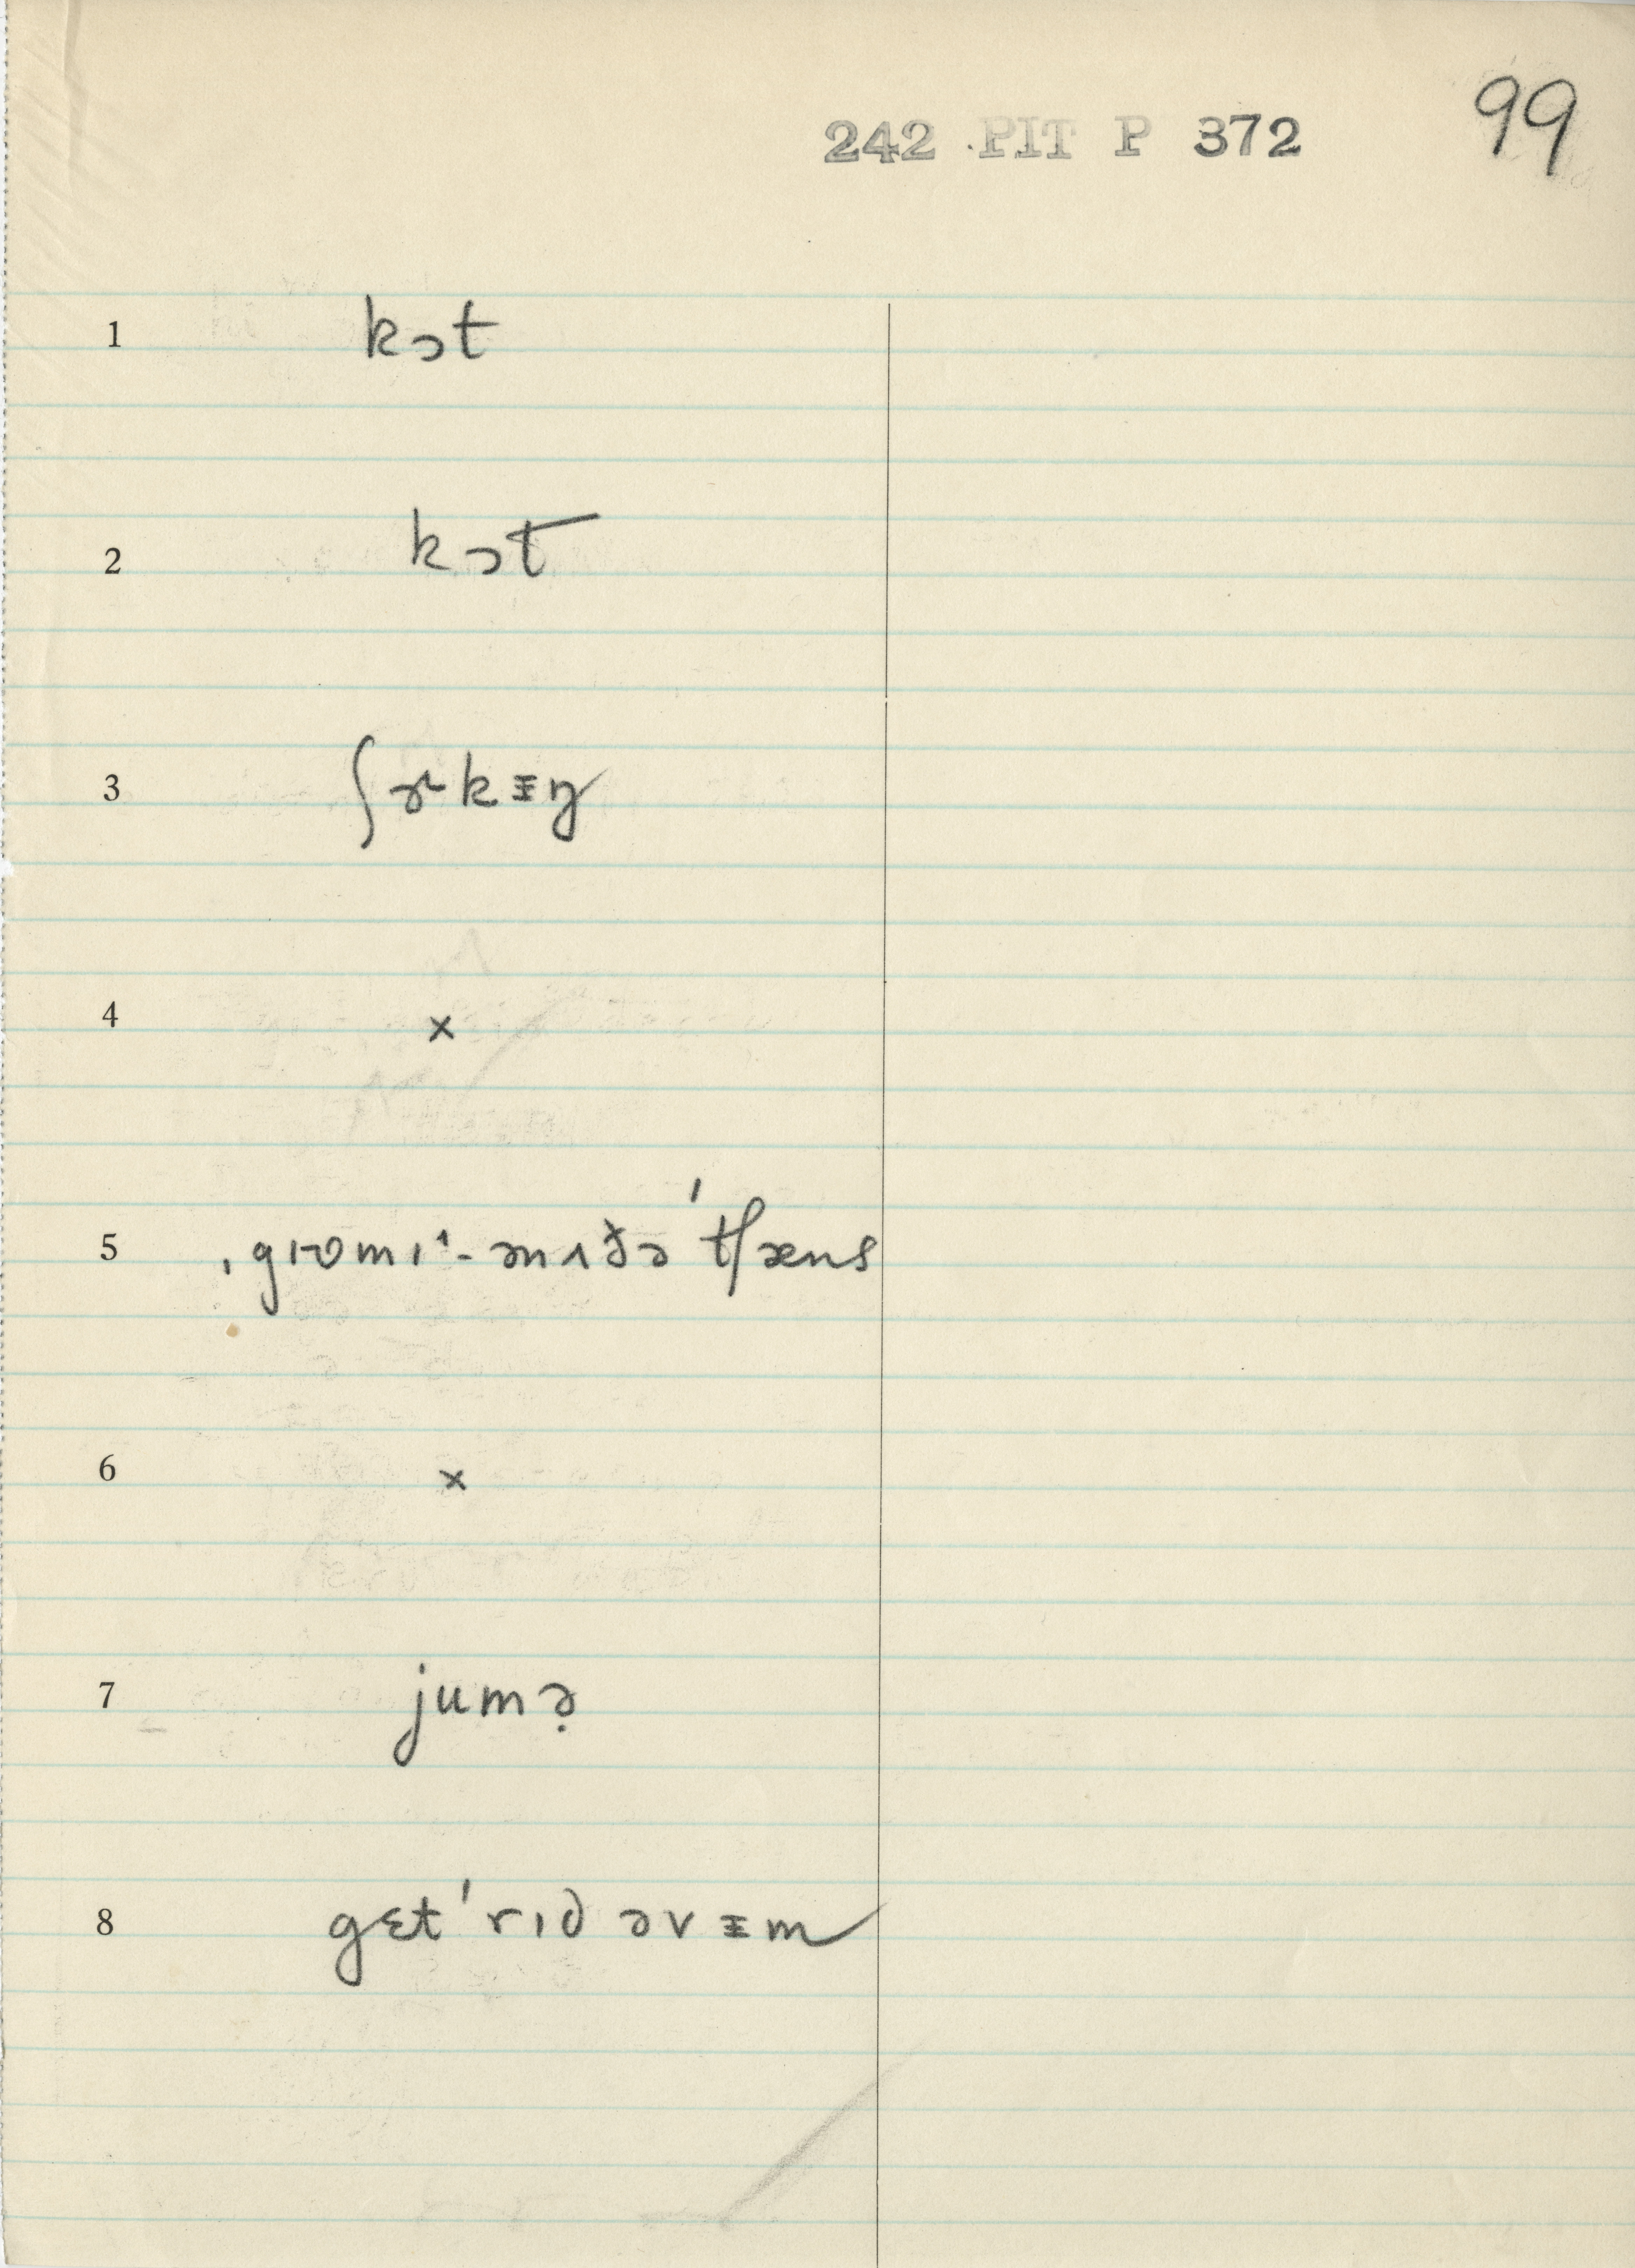 242 PIT P 372 99
1 kɔt
2 kɔt
3 ʃɚkɪ̵ŋ
4 ×
5 ˌgɪʊmɪ^-ənʌðə ˈtʃæns
6 ×
7 jumə̣
8 gɛt ˈrɪd əvɪ̵m